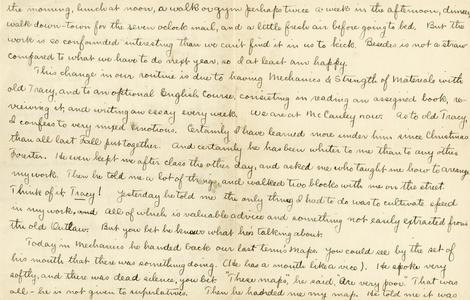 the morning, lunch at noon, a walk or gym perhaps twice a week in the afternoon, dinner,
walk down-town for the seven oclock mail, and a little fresh air before going to bed. But the
work is so confounded interesting than we cant find it in us to kick. Besides is not a straw
compared to what we have to do next year, so I at least am happy.
This change in our routine is due to having Mechanics & Strength of Materials with
old Tracy, and to an optional English Course, consisting in reading an assigned book, re-
viewing it, and writing an essay every week. We are at McCauley now. As to old Tracy,
I confess to very mixed emotions. Certainly I have learned more under him since Christmas
than all last Fall put together. And certainly he has been whiter to me than to any other
Forester. He even kept me after class the other day, and asked me who taught me how to arrange
my work. Then he told me a lot of things and walked two blocks with me on the street.
Think of it Tracy! Yesterday he told me the only thing I had to do was to cultivate speed
in my work, and all of which is valuable advice and something not easily extracted from
the old Outlaw. But you bet he knows what he's talking about.
Today in Mechanics he handed back our last term's maps. You could see by the set of
his mouth that there was something doing. (He has a mouth like a vice). He spoke very
softly, and there was dead silence, you bet. "These maps", he said, "are very poor." That was
all - he is not given to superlatives. Then he handed me my map. He told me it was